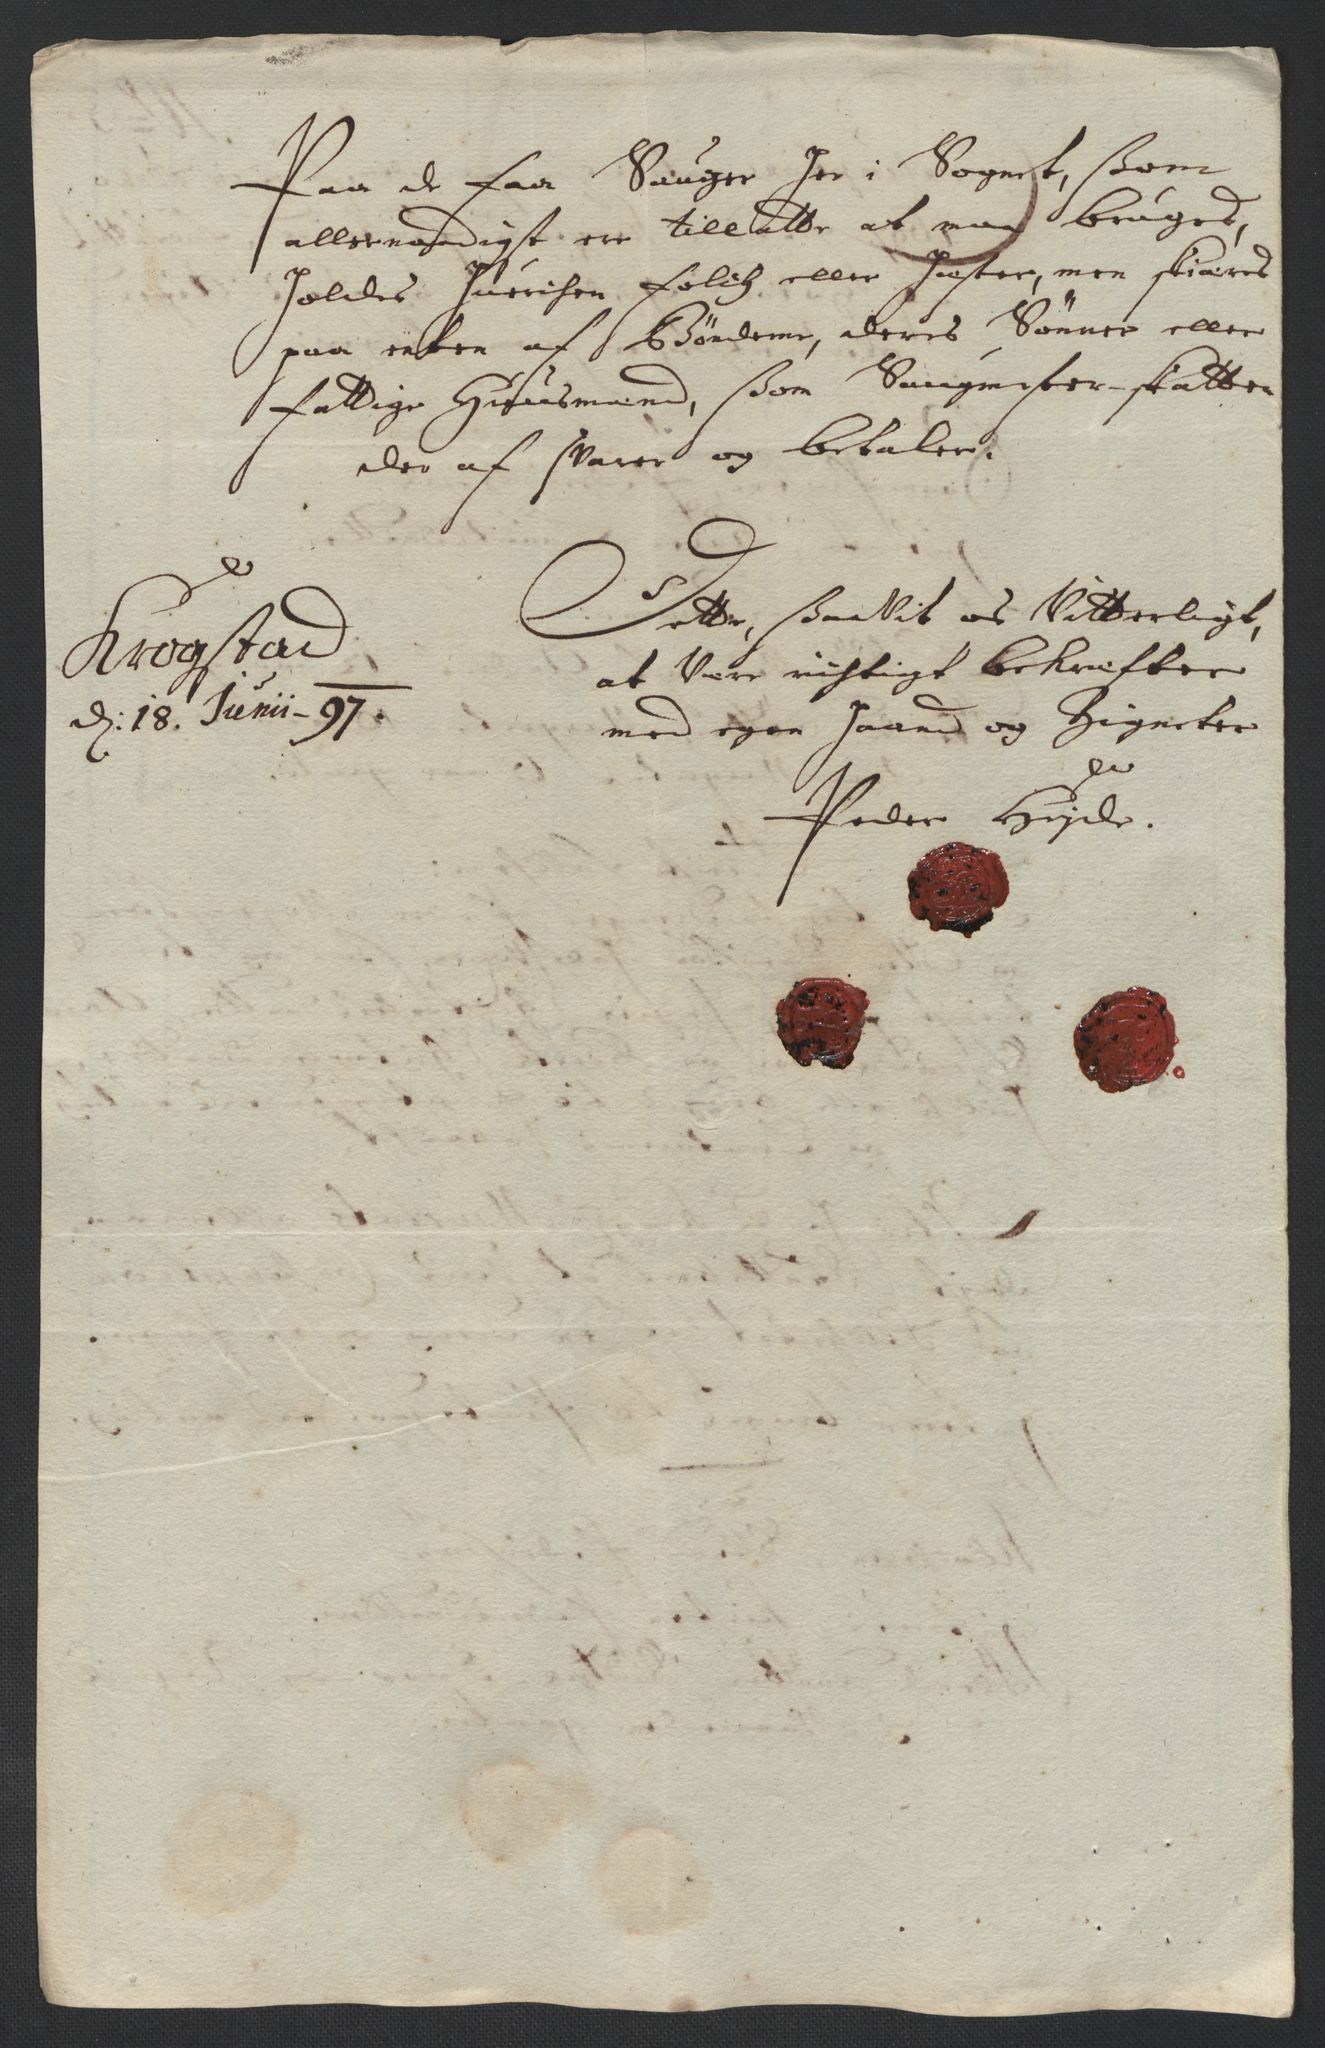 Paa de faa Sauger her i Sognet, som
allernaadigst ere tilladte at maa bruges,
holdes huerchen folch eller hester, men skiæres
paa enten af Bönderne, deres Sönner eller
fattige Huusmænd, som Saugmester-skatten
der af svarer og betaler.
Krogstad
d: 18. Junii - 97.
Dette, saavit os Vitterligt,
at Være richtigt bekræfter
med egen haand og Zigneter
Peder Hyjde.